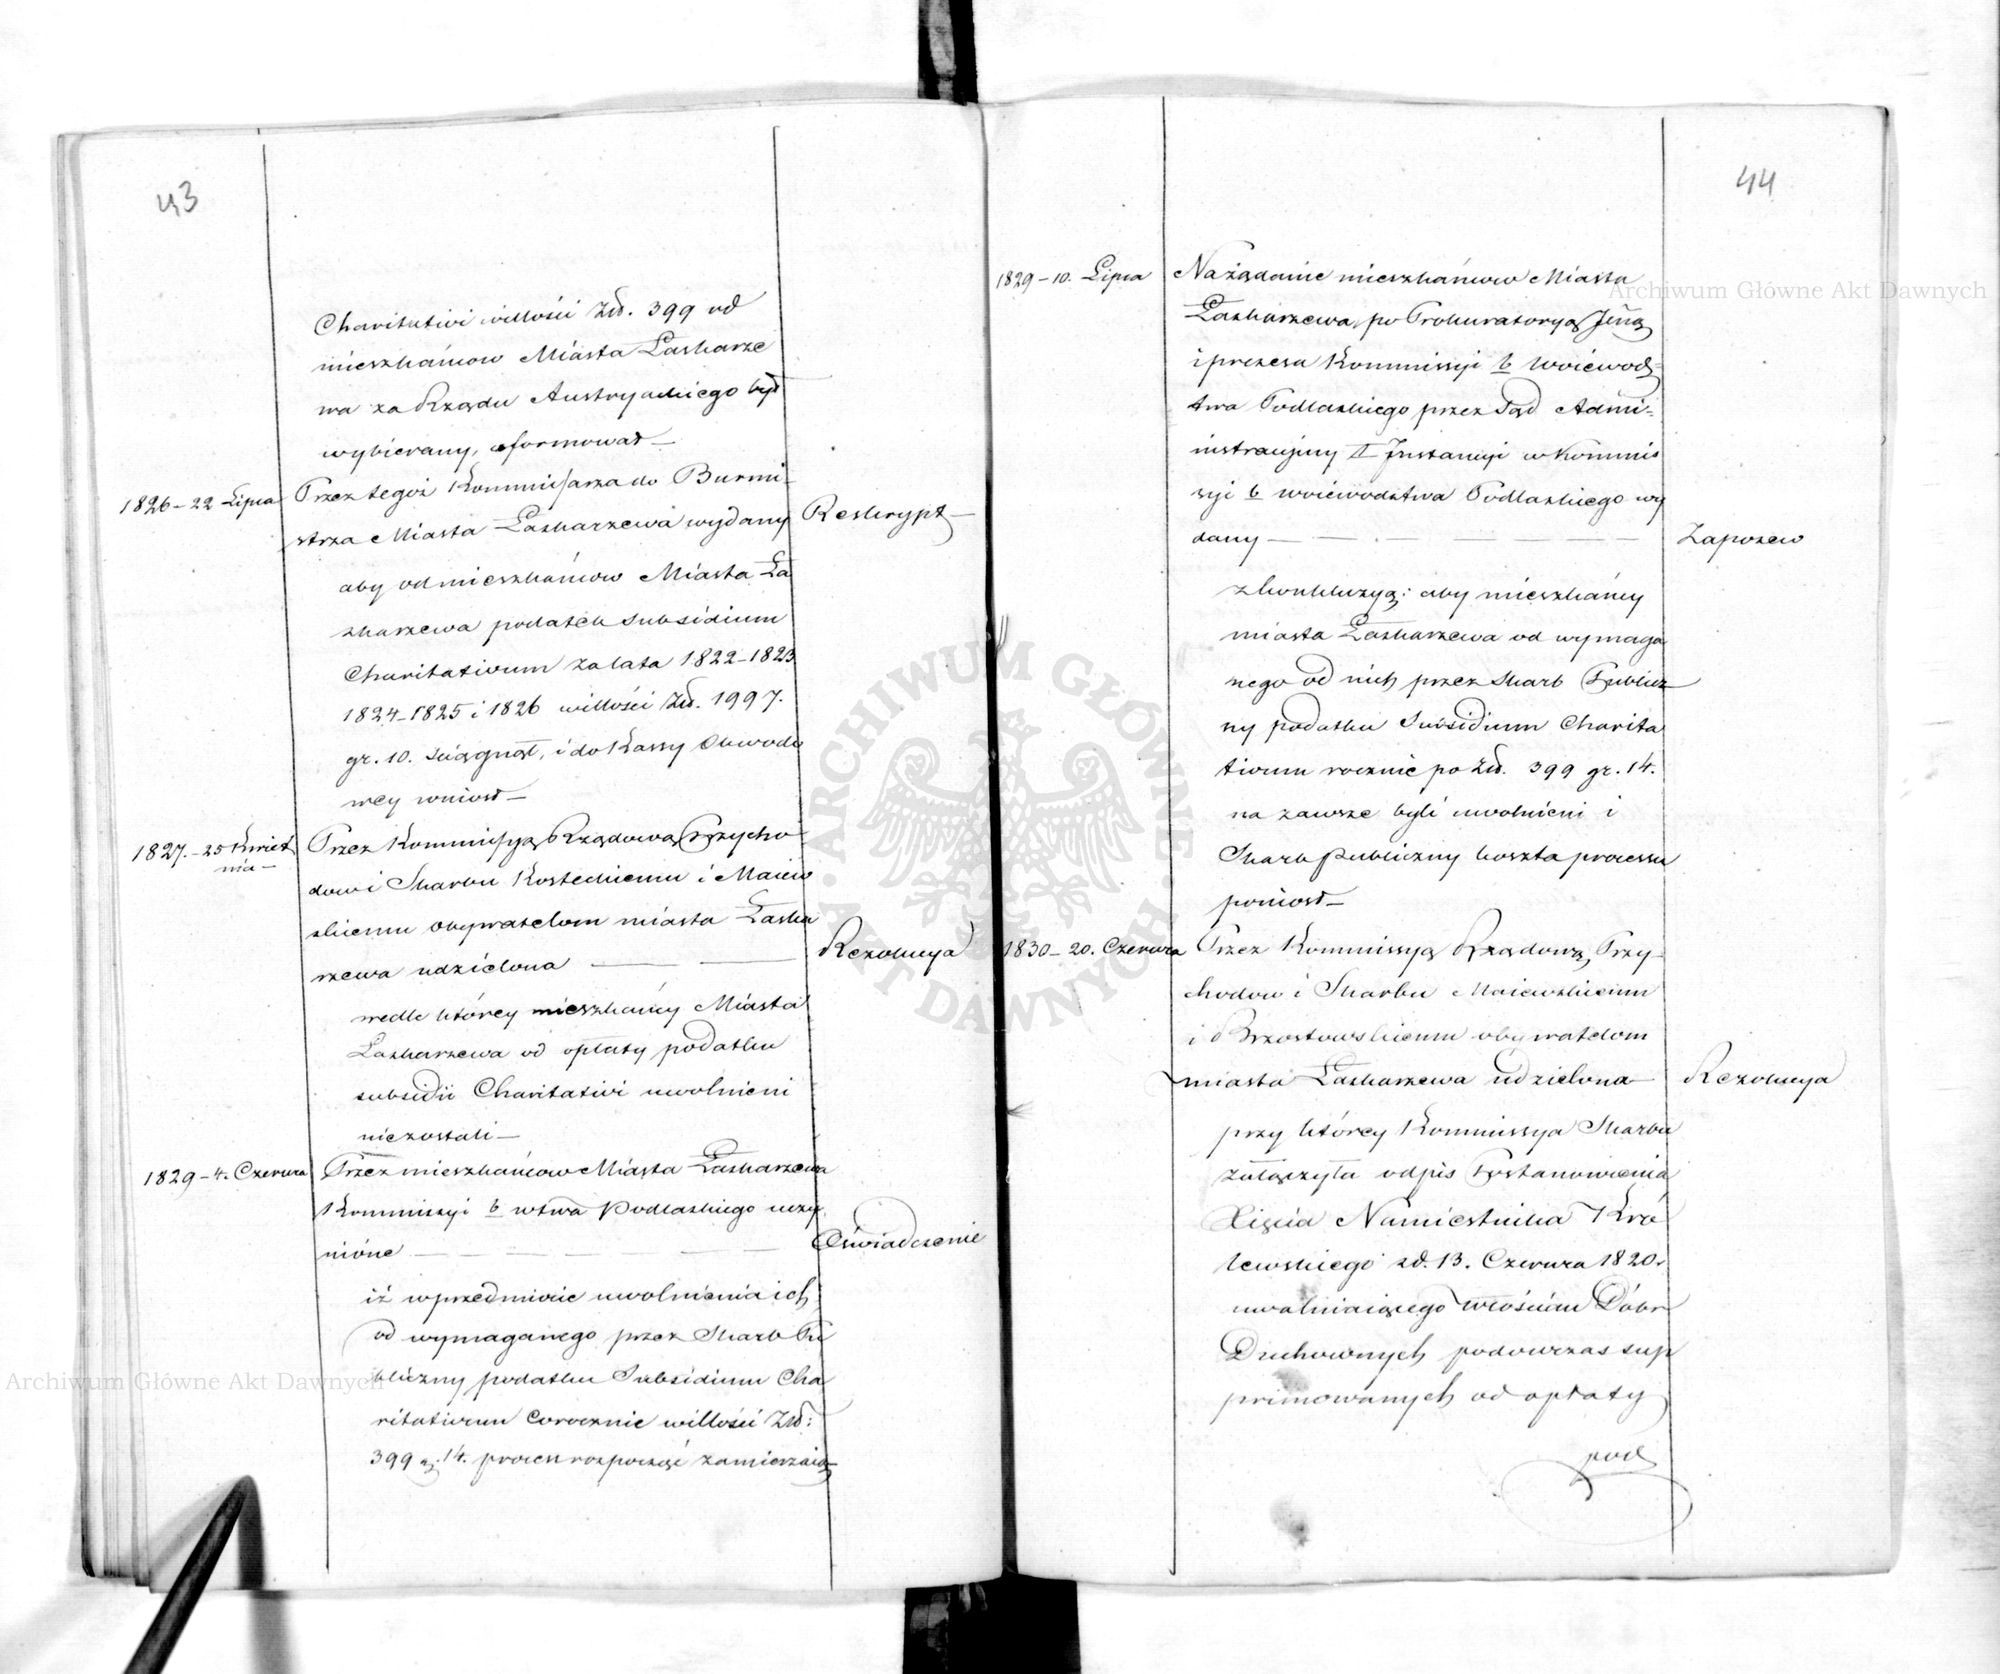 43
Charitativi willości Zł. 399 od
mieszkańcow Miasta Łaskarze
wa za Rządu Austryackiego był
wybierany, uformował —
1826 – 22 Lipca Przez tegoż Kommissarza do Burmi-
strza Miasta Łaskarzewa wydany Reskrypt —
aby od mieszkańcow Miasta Ła
skarzewa podatek subsidium
Charitativum za lata 1822–1823
1824–1825 i 1826 willości Zł. 1997.
gr. 10. sciągnął, i do Kassy Obwodo
wey wniosł —
1827. – 25 Kwiet Przez Kommissyą Rządową Przycho
nia — dow i Skarbu Kosteckiemu i Maiew
skiemu obywatelom miasta Łaska
rzewa udzielona — — Rezolucya
wedle którey mieszkańcy Miasta
Łaskarzewa od opłaty podatku
subsidii Charitativi uwolnieni
niezostali —
1829 – 4. Czerwca Przez mieszkańcow Miasta Łaskarzewa
Kommissyi b wtwa Podlaskiego uczy
nione — — — — Oświadczenie
iż w przedmiocie uwolnienia ich
od wymaganego przez Skarb Pu
bliczny podatku Subsidium Cha
ritativum corocznie willości Zł:
399 g. 14. process rozpocząć zamierzaią
44
1829 – 10. Lipca Na żądanie mieszkańcow Miasta
Łaskarzewa, po Prokuratoryą Jlną
i prezesa Kommissyi b Woiewodz-
twa Podlaskiego przez Sąd Admi=
nistracyiny II Instancyi w Kommis
syi b woiewodztwa Podlaskiego wy
dany — — — — — Zapozew
z konkluzyą: aby mieszkańcy
miasta Łaskarzewa od wymaga
nego od nich przez Skarb Publicz
ny podatku Subsidium Charita
tivum rocznie po Zł. 399 gr. 14.
na zawsze byli uwolnieni i
Skarb publiczny koszta processu
poniosł —
1830 – 20. Czerwca Przez Kommissyą Rządową Przy-
chodow i Skarbu Maiewskiemu
i Brzostowskiemu obywatelom
miasta Łaskarzewa udzielona — Rezolucya
przy którey Kommissya Skarbu
załączyła odpis Postanowienia
Xięcia Namiestnika Kró
lewskiego zd. 13. Czerwca 1820.
uwalniaiącego włościan Dóbr
Duchownych podowczas sup
primowanych od opłaty
pod
Archiwum Główne Akt Dawnych
Archiwum Główne Akt Dawnych
ARCHIWUM GŁÓWNE AKT DAWNYCH